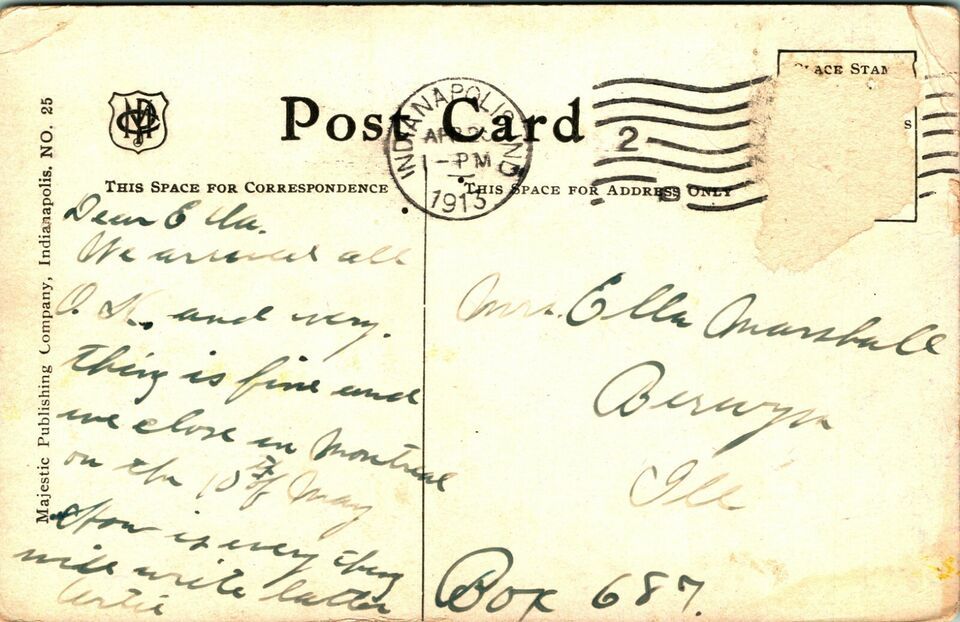 Post Card
PLACE STAM
S
INDIANAPOLIS, IND.
APR 2
1 - PM
1913
2
THIS SPACE FOR CORRESPONDENCE
THIS SPACE FOR ADDRESS ONLY
Majestic Publishing Company, Indianapolis, NO. 25
Dear Ella.
We arrived all
O.K. and evry.
thing is fine and
we close in Montreal
on the 10th of May
How is every thing
will write latter
Artie
Mrs. Ella Marshall
Berwyn
Ill
Box 687.